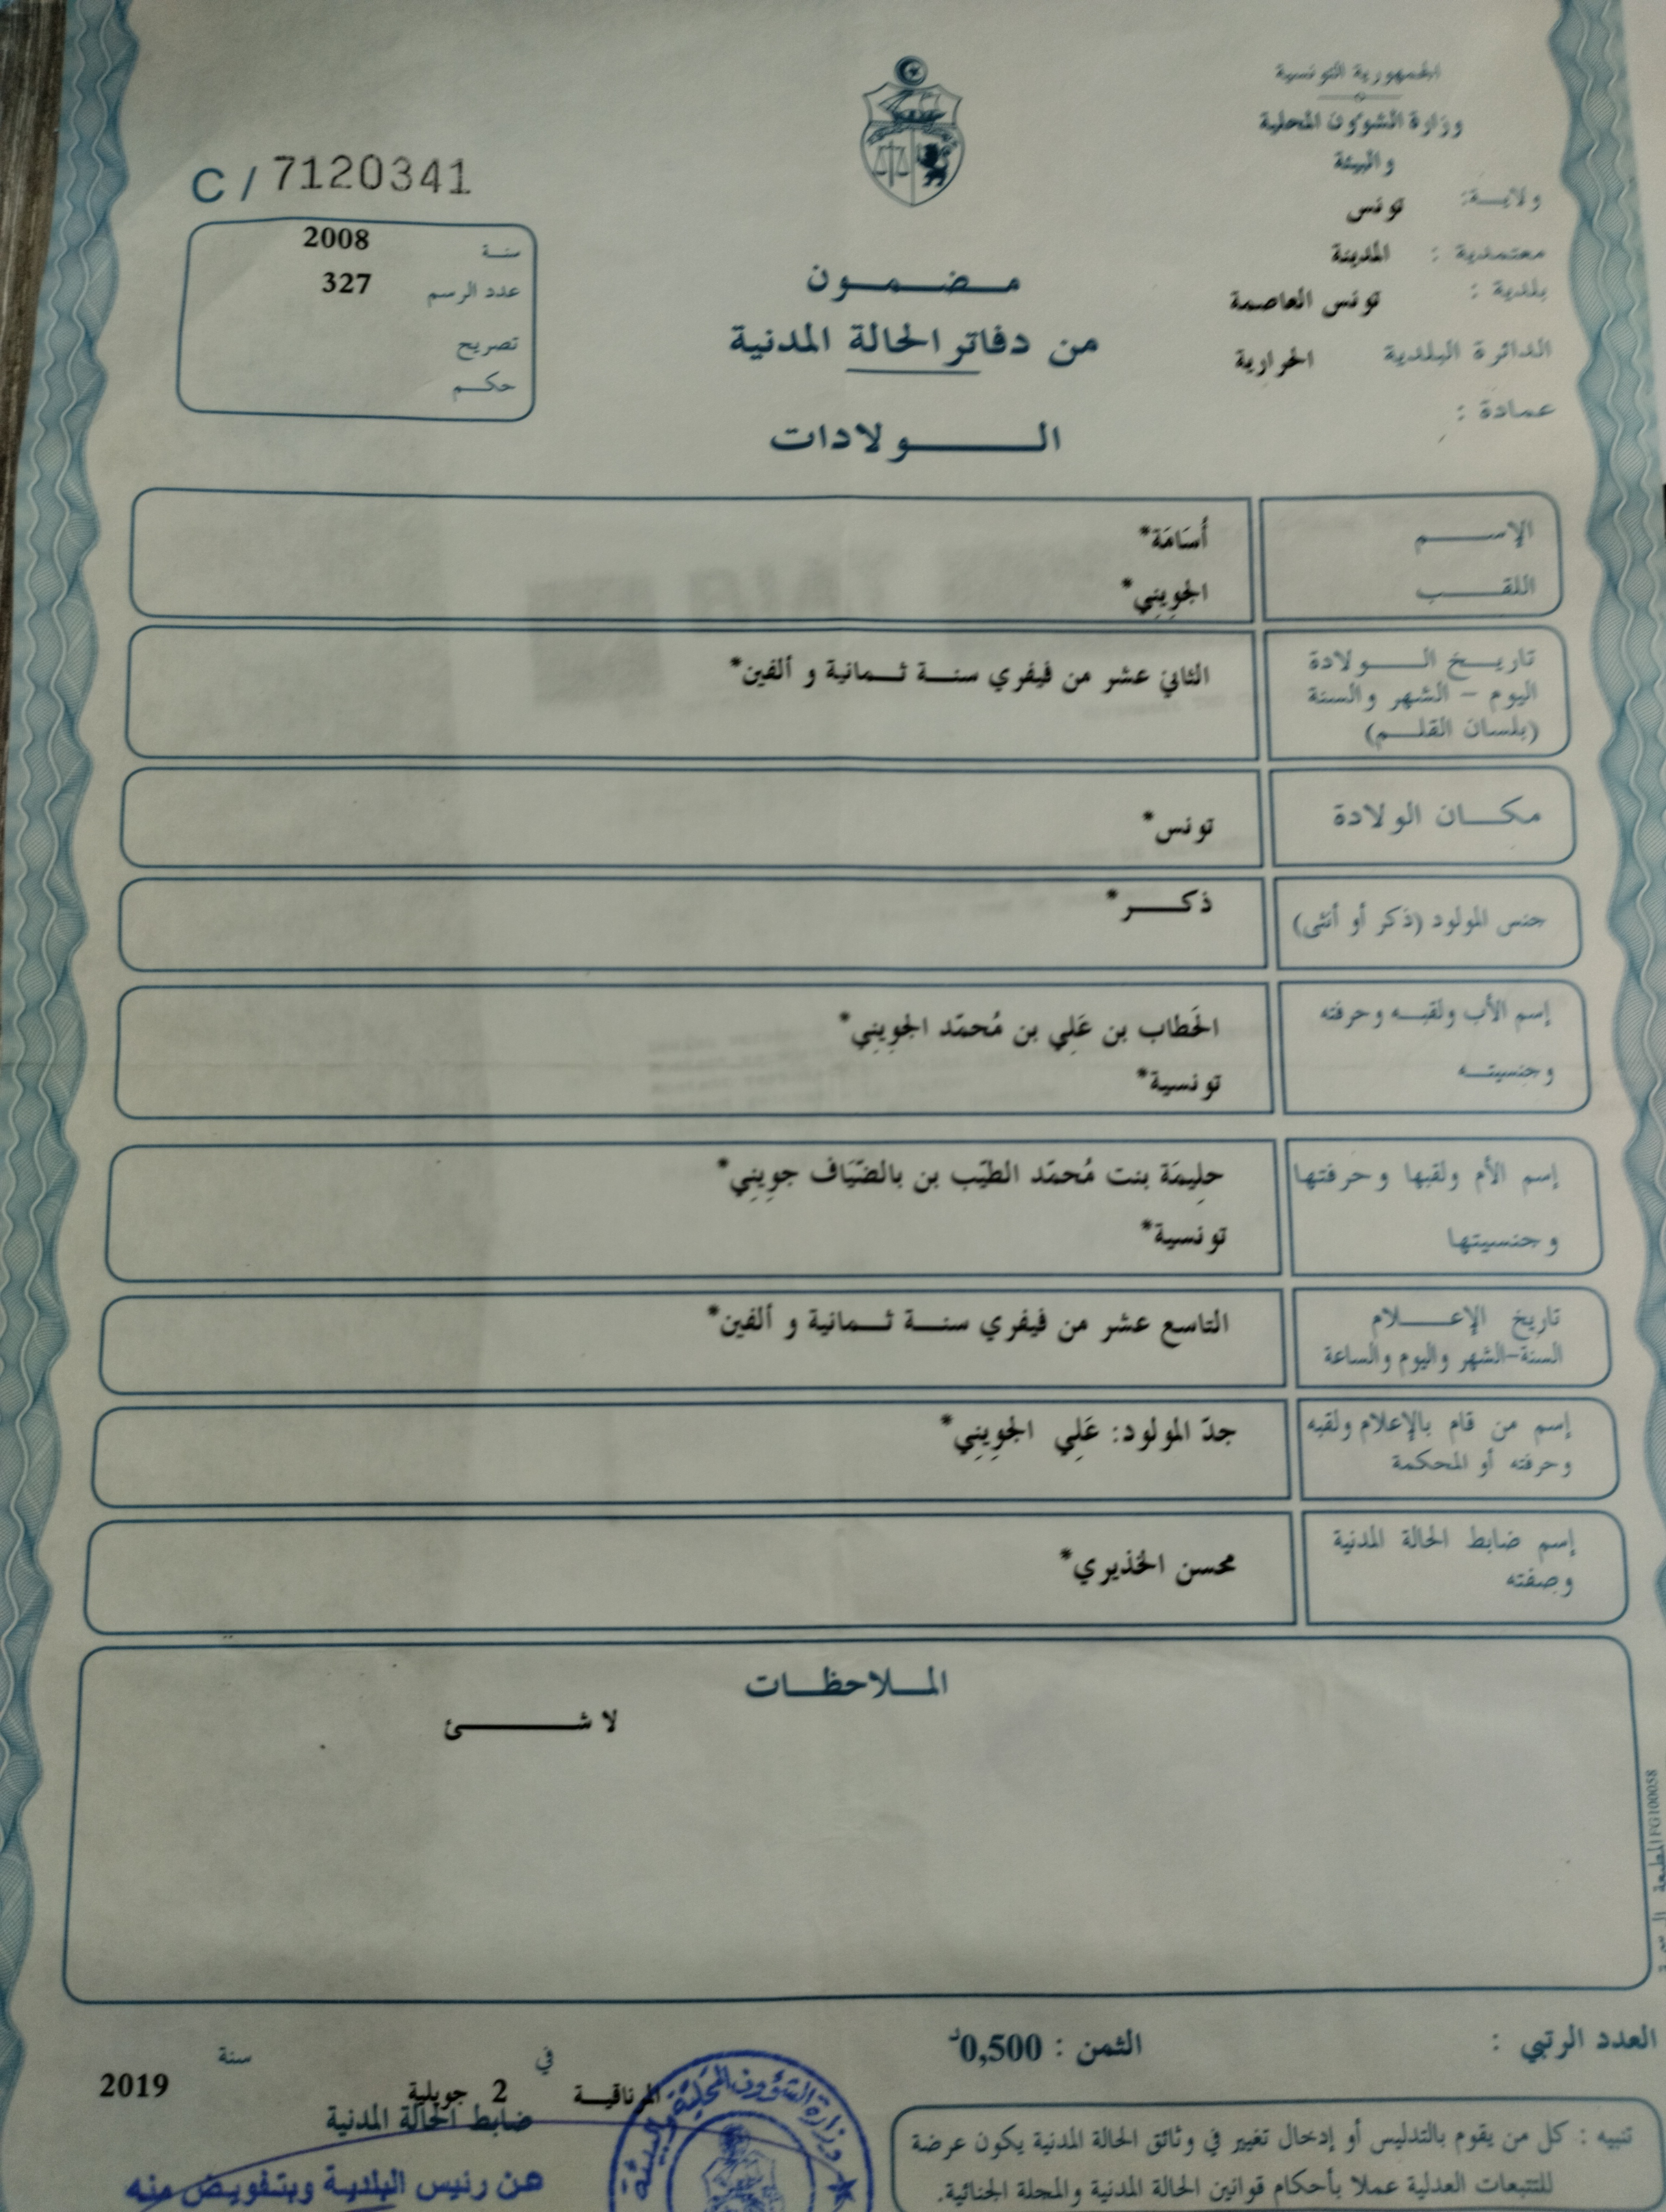 الجمهورية التونسية
وزارة الشؤون المحلية
والبيئة
ولاية: تونس
معتمدية : المدينة
بلدية : تونس العاصمة
الدائرة البلدية الحرارية
عمادة :
C / 7120341
سنة 2008
عدد الرسم 327
تصريح
حكم
مضمون
من دفاتر الحالة المدنية
الولادات
الإسم أُسَامَة*
اللقب الجوِينِي*
تاريخ الولادة
اليوم - الشهر والسنة
(بلسان القلم)
الثاني عشر من فيفري سنة ثمانية و ألفين*
مكان الولادة تونس*
جنس المولود (ذكر أو أنثى) ذكر*
إسم الأب ولقبه وحرفته الحَطاب بن عَلِي بن مُحمّد الجوِينِي*
وجنسيته تونسية*
إسم الأم ولقبها وحرفتها حلِيمَة بنت مُحمّد الطيّب بن بالضّيَاف جوِينِي*
وجنسيتها تونسية*
تاريخ الإعلام
السنة-الشهر واليوم والساعة
التاسع عشر من فيفري سنة ثمانية و ألفين*
إسم من قام بالإعلام ولقبه
وحرفته أو المحكمة
جدّ المولود: عَلِي الجوِينِي*
إسم ضابط الحالة المدنية
وصفته
محسن الخذيري*
الملاحظات
لا شئ
العدد الرتبي :
الثمن : 0,500د
المرناقية في 2 جويلية سنة 2019
ضابط الحالة المدنية
عن رئيس البلدية وبتفويض منه
وزارة الشؤون المحلية والبيئة
تنبيه : كل من يقوم بالتدليس أو إدخال تغيير في وثائق الحالة المدنية يكون عرضة
للتتبعات العدلية عملا بأحكام قوانين الحالة المدنية والمجلة الجنائية.